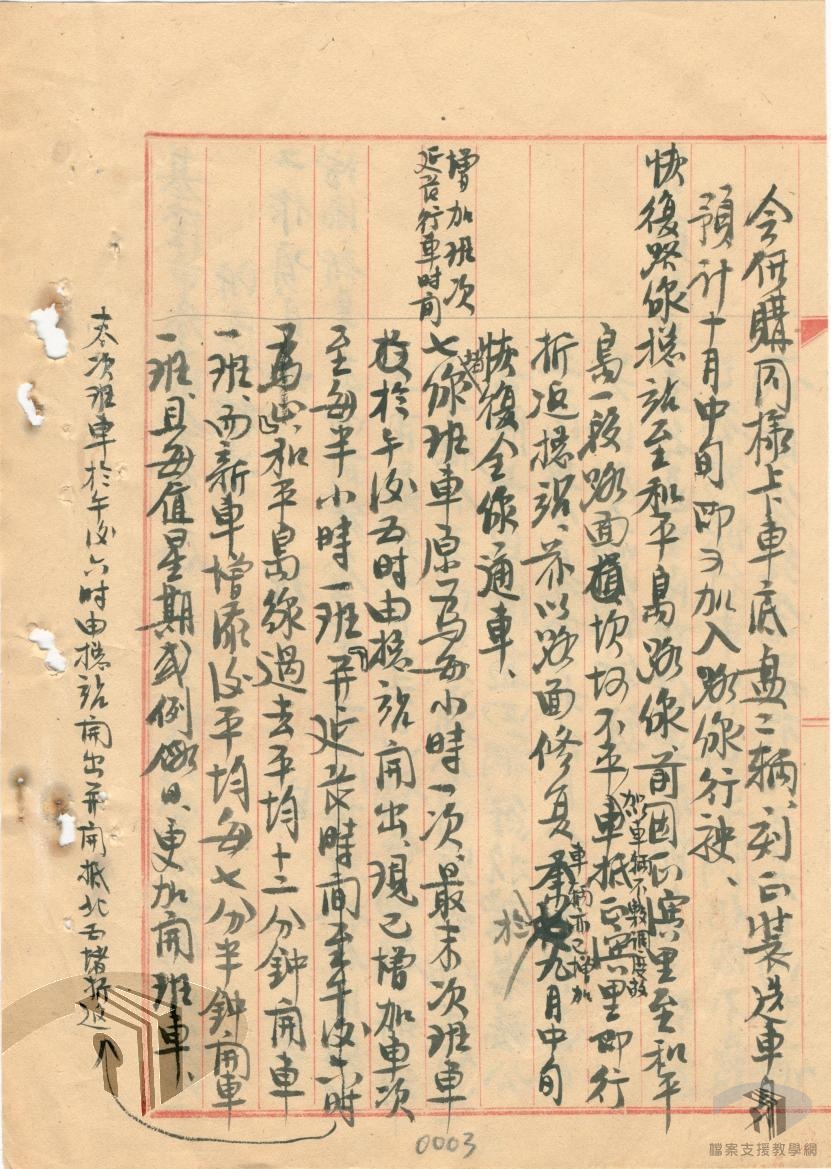 會併購同樣上卡車底盤二輛、刻正裝造車身
預計十月中旬即可加入路線行駛、
恢復路線總站至和平島路線、前因正濱里至和平
島一段路面坎坷不平
加以車輛不敷調度故
車抵正濱里即行
折返總站、茲以路面修復
車輛亦已增加
於九月中旬
恢復全線通車、
增加班次
延長行車時間
七堵線班車原為每小時一次、最末次班車
於午後五時由總站開出、現已增加車次
至每半小時一班、並延長時間至午後六時
和平島線過去平均十二分鐘開車
一班、而新車增添後平均每七分半鐘開車
一班、且每值星期或例假日、更加開班車、
末次班車於午後六時由總站開出並開抵北五堵折返
0003
檔案支援教學網